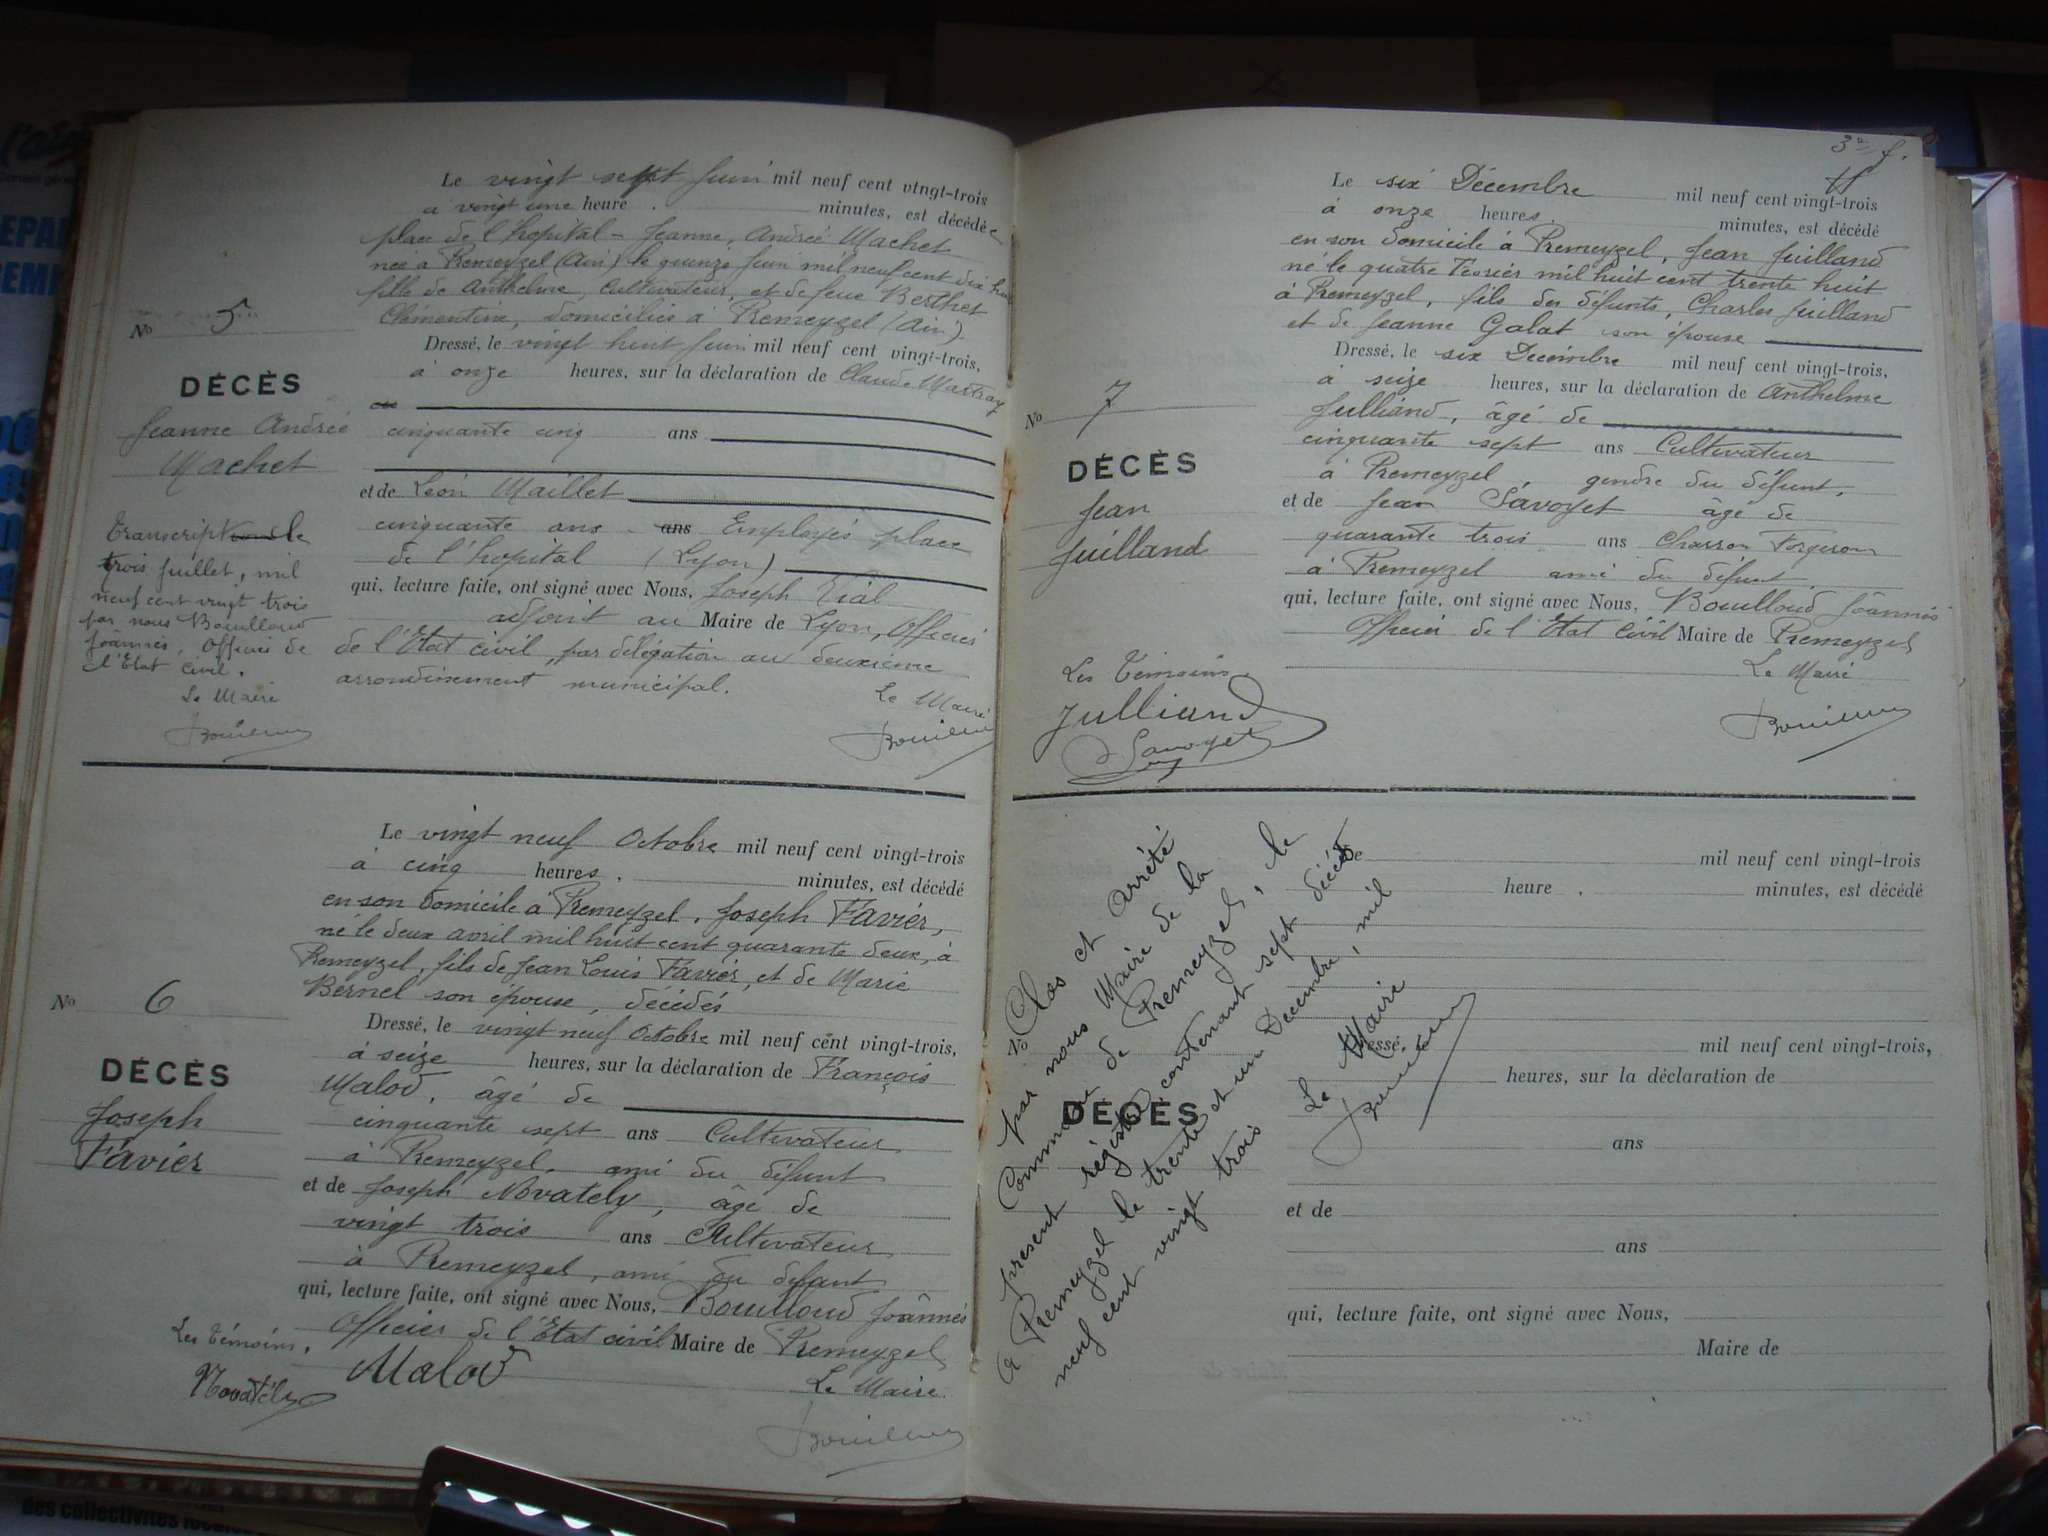 Le vingt sept Juin mil neuf cent vingt-trois
à vingt une heure . minutes, est décédée
place de l'hopital - Jeanne, Andrée Machet
née à Premeyzel (Ain) le quinze Juin mil neuf cent dix huit
fille de Anthelme, Cultivateur, et de feue Berthet
Clémentine, domiciliés à Premeyzel (Ain).
No 5
DÉCÈS
Jeanne Andrée
Machet
Transcription le
trois Juillet, mil
neuf cent vingt trois
par nous Bouilloud
Joânnès, Officier de
l'Etat Civil.
Le Maire
Dressé, le vingt huit Juin mil neuf cent vingt-trois,
à onze heures, sur la déclaration de Claude Martray
cinquante cinq ans
et de Léon Maillet
cinquante ans ans Employés place
de l'hopital (Lyon)
qui, lecture faite, ont signé avec Nous, Joseph Vial
adjoint au Maire de Lyon, Officier
de l'Etat civil, par délégation au deuxième
arrondissement municipal.
Le Maire
Le vingt neuf Octobre mil neuf cent vingt-trois
à cinq heures . minutes, est décédé
en son domicile à Premeyzel, Joseph Favier,
né le deux avril mil huit cent quarante deux, à
Premeyzel, fils de Jean Louis Favier, et de Marie
Bernel son épouse, décédés
No 6
DÉCÈS
Joseph
Favier
Dressé, le vingt neuf Octobre mil neuf cent vingt-trois,
à seize heures, sur la déclaration de François
Malod, âgé de
cinquante sept ans Cultivateur
à Premeyzel, ami du défunt
et de Joseph Novately, âgé de
vingt trois ans Cultivateur
à Premeyzel, ami du défunt
qui, lecture faite, ont signé avec Nous, Bouilloud Joânnès
Officier de l'Etat civil Maire de Premeyzel
Les Témoins,
Novatély Malod
Le Maire
3e f.
Le six Décembre mil neuf cent vingt-trois
à onze heures. minutes, est décédé
en son domicile à Premeyzel, Jean Juilland
né le quatre Février mil huit cent trente huit
à Premeyzel, fils des défunts, Charles Juilland
et de Jeanne Galat son épouse
No 7
DÉCÈS
Jean
Juilland
Dressé, le six Décembre mil neuf cent vingt-trois,
à seize heures, sur la déclaration de Anthelme
Julliand, âgé de
cinquante sept ans Cultivateur
à Premeyzel gendre du défunt,
et de Jean Savoyet âgé de
quarante trois ans Charron Forgeron
à Premeyzel ami du défunt.
qui, lecture faite, ont signé avec Nous, Bouilloud Joânnès
Officier de l'Etat Civil Maire de Premeyzel
Le Maire
Les Témoins
Julliand
Savoyet
Clos et Arrêté
par nous Maire de la
Commune de Premeyzel, le
présent régistre contenant sept décès
à Premeyzel le trente et un Decembre, mil
neuf cent vingt trois
Le Maire
mil neuf cent vingt-trois
heure . minutes, est décédé
No
DÉCÈS
Dressé, le mil neuf cent vingt-trois,
heures, sur la déclaration de
ans
et de
ans
qui, lecture faite, ont signé avec Nous,
Maire de
des collectivités locales